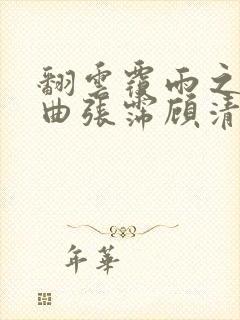 翻雲覆雨之
曲張霈顧清
年華